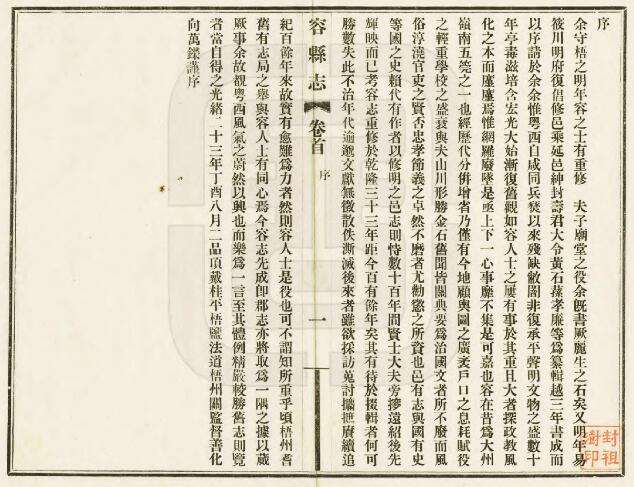 序
余守梧之明年容之士有重修　夫子廟堂之役余旣書厥麗生之石矣又明年易
筱川明府復倡修邑乘延邑紳封壽君大令黃石蓀孝廉等為纂輯越三年書成而
以序請於余余惟粵西自咸同兵燹以來殘缺散閣非復承平聲明文物之盛數十
年亭毒滋培含宏光大始漸復舊觀如容人士之屢有事於其重且大者探政教風
化之本而塵塵焉惟網羅廢墜是亟上下一心事靡不集是可嘉也容在昔為大州
嶺南五筦之一也經歷代分併增省乃僅有今地顧輿圖之廣袤戶口之息耗賦役
之輕重學校之盛衰與夫山川形勝金石舊聞皆關典要為治國文者所不廢而風
俗淳澆官吏之賢否忠孝節義之卓然不磨者尤勸懲之所資也邑有志與國有史
等國之史賴代有作者以修明之邑志則恃數十百年間賢士大夫旁搜遠紹後先
輝映而已考容志重修於乾隆三十三年距今百有餘年矣其有待於掇輯者何可
勝數失此不治年代逾邈文獻無徵散佚澌滅後來者雖欲採訪蒐討攟摭賡續追
容縣志
卷首
序
一
紀百餘年來故實有愈難為力者然則容人士是役也可不謂知所重乎頃梧州耆
舊有志局之舉與容人士有同心焉今容志先成卽郡志亦將取為一隅之據以蕆
厥事余故覩粵西風氣之蔚然以興也而樂為一言至其體例精嚴較勝舊志則覽
者當自得之光緒二十三年丁酉八月二品頂戴桂平梧鹽法道梧州關監督善化
向萬鑅謹序
封祖
樹印